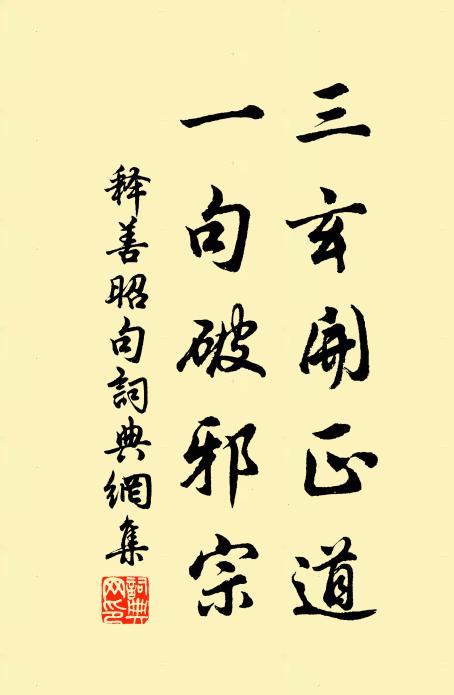 三玄開正道
一句破邪宗
释善昭句詞典網集
詞典網印